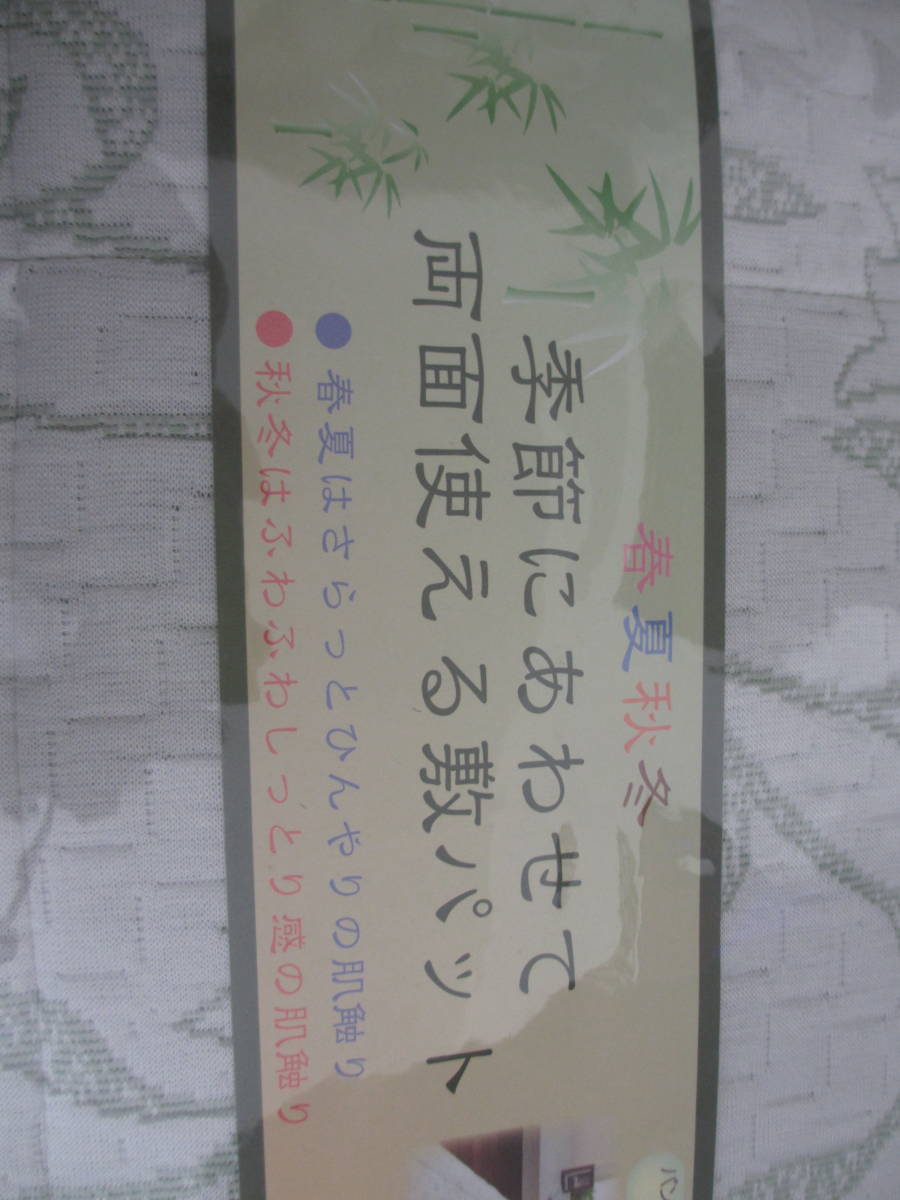 春夏秋冬
季節にあわせて
両面使える敷パット
●春夏はさらっとひんやりの肌触り
●秋冬はふわふわしっとり感の肌触り